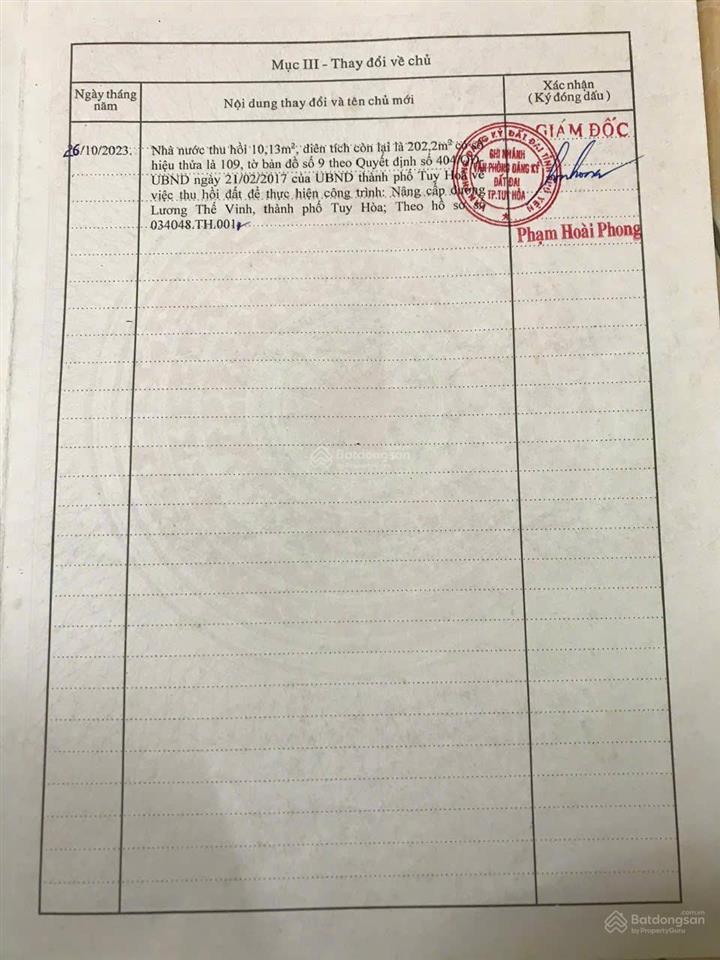 Mục III - Thay đổi về chủ
Ngày tháng năm
Nội dung thay đổi và tên chủ mới
Xác nhận
( Ký đóng dấu )
26/10/2023. Nhà nước thu hồi 10,13m², diện tích còn lại là 202,2m² có số
hiệu thửa là 109, tờ bản đồ số 9 theo Quyết định số 404/QĐ-
UBND ngày 21/02/2017 của UBND thành phố Tuy Hoà về
việc thu hồi đất để thực hiện công trình: Nâng cấp đường
Lương Thế Vinh, thành phố Tuy Hòa; Theo hồ sơ số
034048.TH.001
GIÁM ĐỐC
CHI NHÁNH
VĂN PHÒNG ĐĂNG KÝ
ĐẤT ĐAI
TP.TUY HÒA
Phạm Hoài Phong
Batdongsan
by PropertyGuru
Batdongsan.com.vn
by PropertyGuru